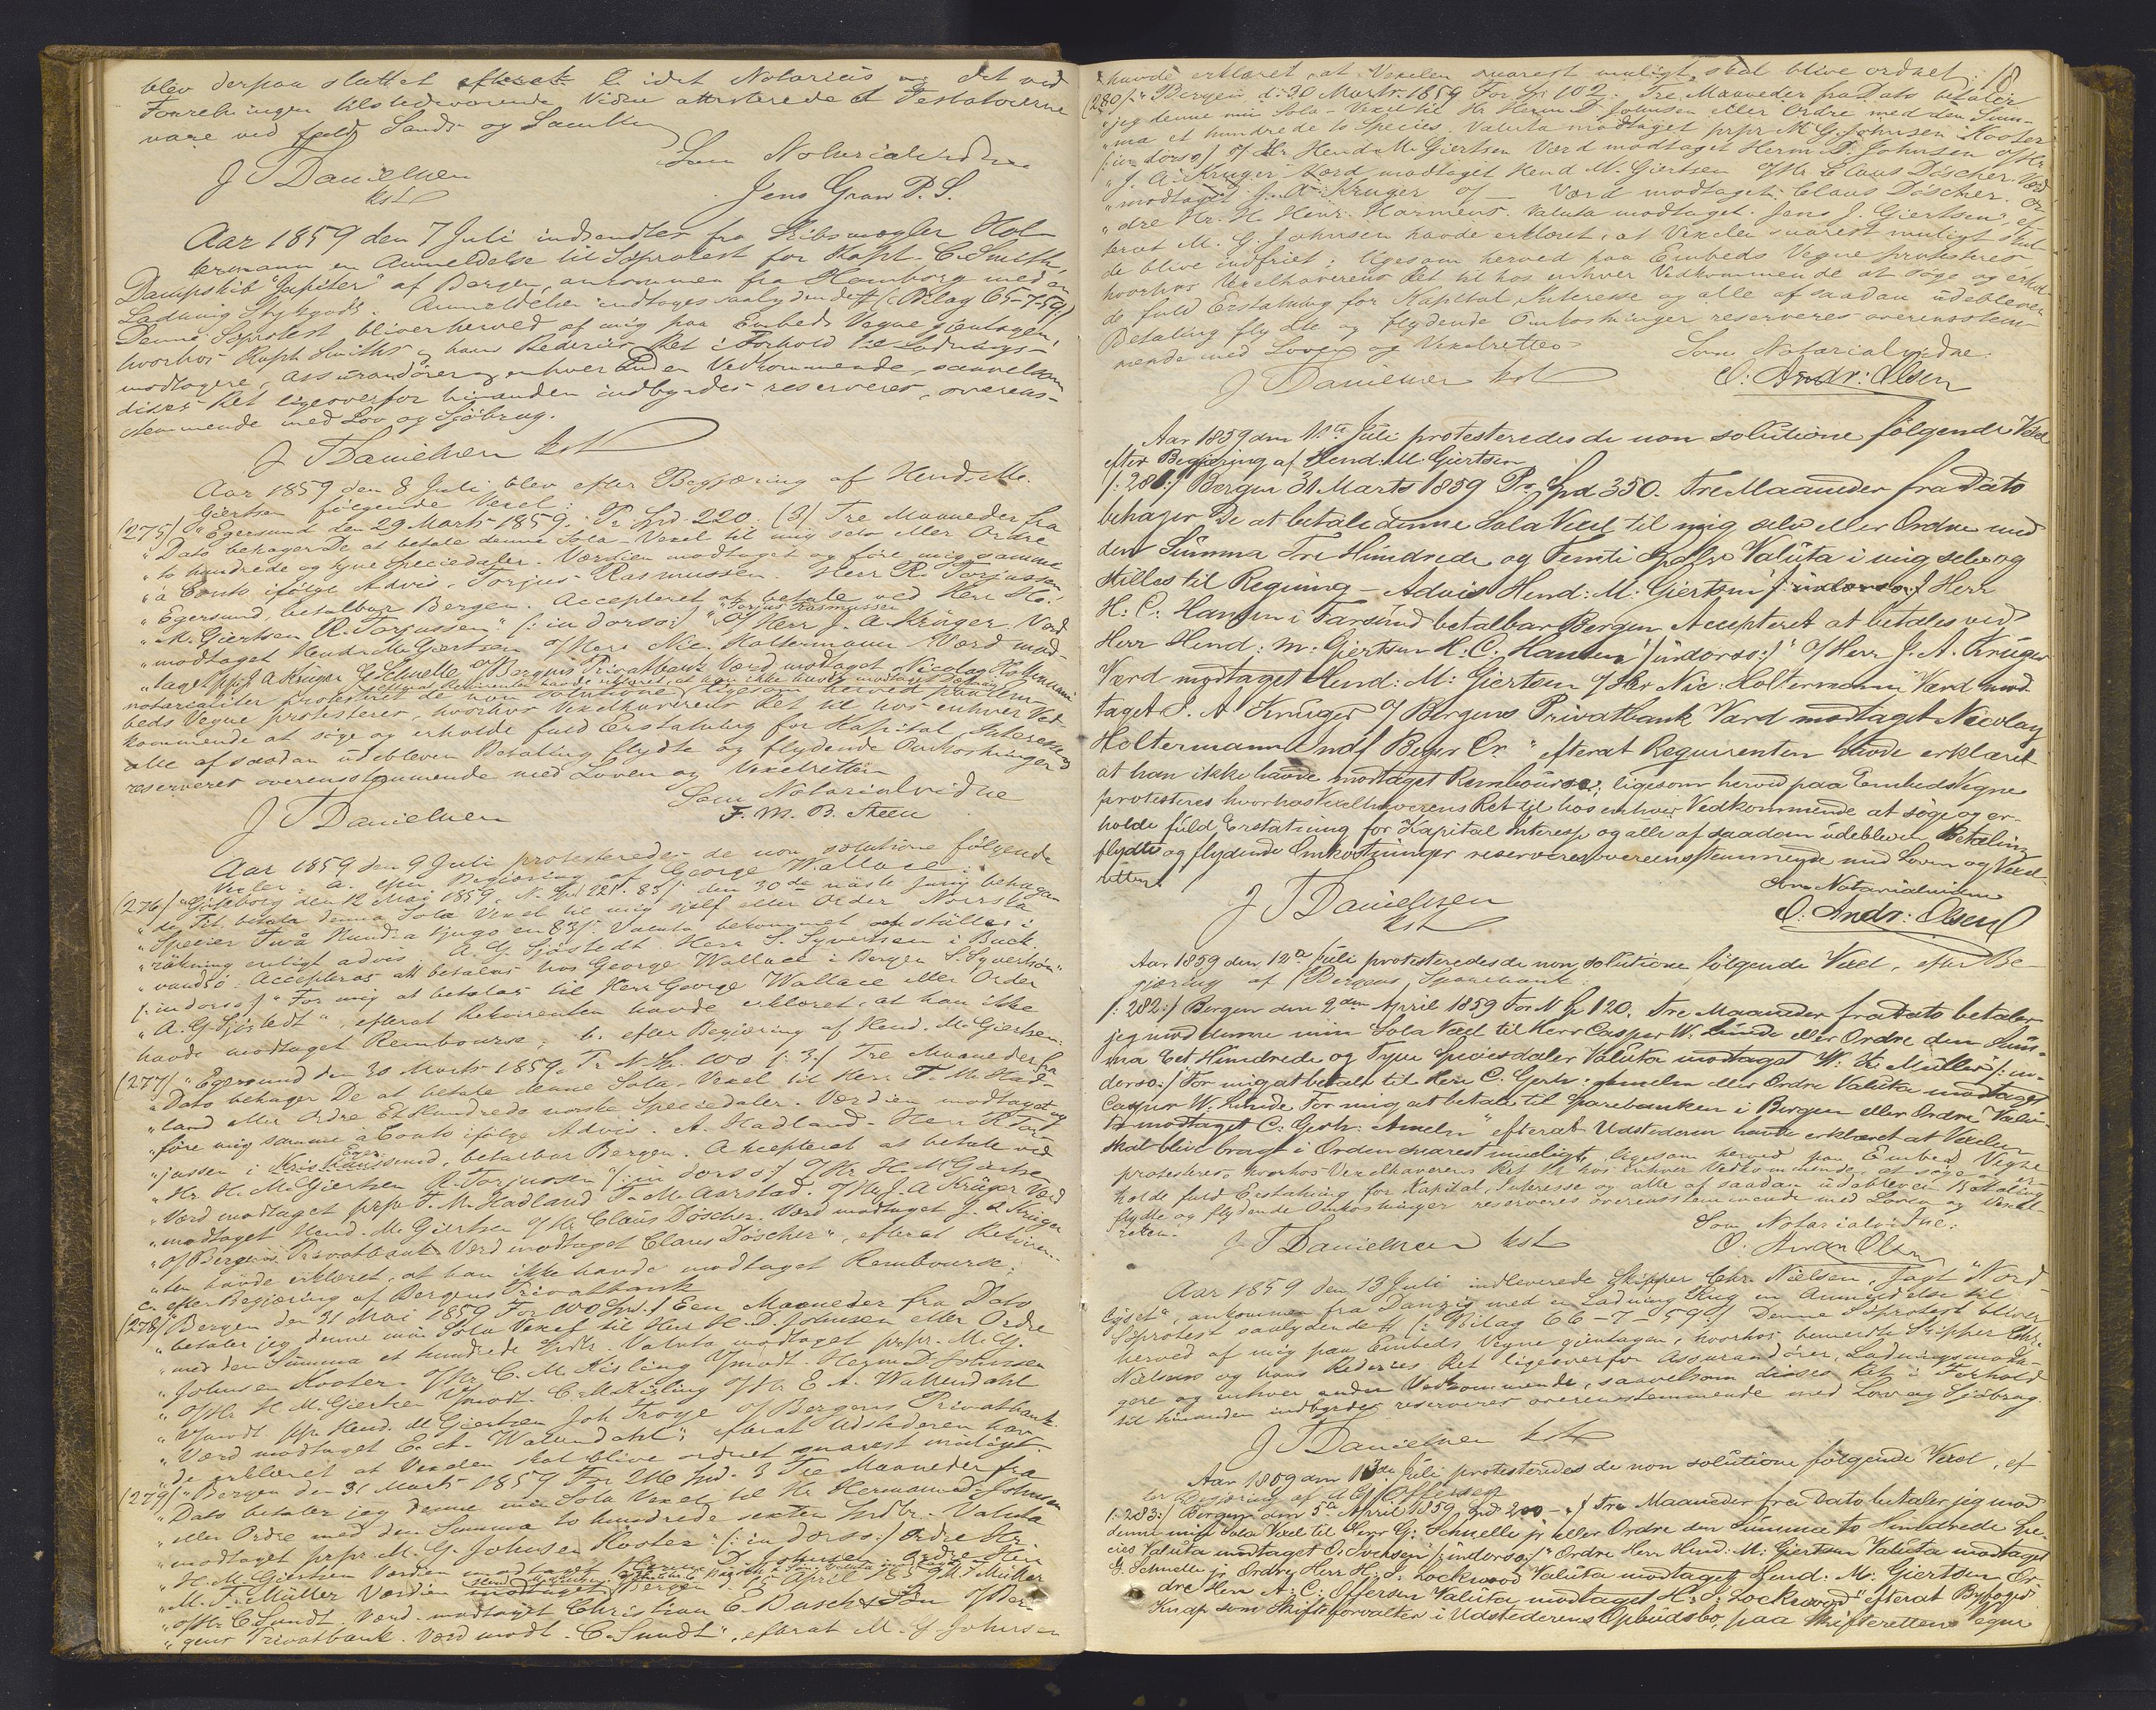 blev derpaa sluttet idet Notarius og det ved
Forretningen tilstedeværende Vidne attesterede at Testatorerne
vare ved fuld Sands og Samling
Som Notarialvidne
J T Danielsen Jens Gran P. S.
kst
Aar 1859 den 7 Juli indsendtes fra Skibsmægler Hol-
termann en Anmeldelse til Søprotest for Kapt. C. Smith,
Dampskib "Jupiter" af Bergen, ankommen fra Hamborg med en
Ladning Stykgods. Anmeldelsen indtages saalydende # (: Bilag 65-7-59:)
Denne Søprotest bliver herved af mig paa Embeds Vegne gjentagen,
hvorhos Kapt. Smiths og hans Rederies Ret i Forhold til Ladnings-
modtagere, Assurandører og enhver Anden Vedkommende, saavelsom
disses Ret ligeoverfor hinanden indbyrdes reserveres, overens-
stemmende med Lov og Sjöbrug.
J T Danielsen kst
Aar 1859 den 8 Juli blev efter Begjæring af Hend. M.
Giertsen følgende Vexel:
(275/ "Egersund den 29 Marts 1859. Pr Spd 220. (3/ Tre Maaneder fra
"Dato behager De at betale denne Sola-Vexel til mig selv eller Ordre
"to hundrede og tyve Speciedaler. Værdien modtaget og føre mig samme
"à Conto ifølge Advis. Torjus Rasmussen. Herr R. Torjussen
"Egersund, betalbar Bergen. Accepteret at betale ved Herr H.
"M. Giertsen R. Torjussen" (: in dorso:) "Torjus Rasmussen o/ Herr J. A. Krüger. Værd
"modtaget Hendr. M. Giertsen o/ Herr Nic. Holtermann Værd mod-
"taget pp. J A Krüger G Schnelle o/ Bergens Privatbank Værd modtaget Nicolay Holtermann
notarialiter protesteret de non solutione, ligesom herved paa Em-
beds Vegne protesteres, hvorhos Vexelhaverens Ret til hos enhver Ved-
kommende at søge og erholde fuld Erstatning for Kapital, Interesse og
alle af saadan udebleven Betaling flydte og flydende Omkostninger
reserveres overensstemmende med Loven og Vexelretten
Som Notarialvidne
J T Danielsen F. M. B. Steen
Aar 1859 den 9 Juli protesteredes de non solutione følgende
Vexler: a. efter Begjæring af George Wallace
(276/ "Göteborg den 12 Maj 1859. N. Spd 221. 83/: den 30de näste Juny behagen
"de Tit. betala denna Sola Vexel til mig sjelf eller Order Norrska
"Specier Två Hundra tjugo en 83/. Valuta bekommet som ställes i
"räkning enligt advis. A. G. Sjöstedt. Herr S. Syvertsen i Buck-
"vandsö. Accepteras att betalas hos George Wallace i Bergen S. Syvertsen"
(: in dorso:) "For mig at betalas til Herr George Wallace eller Order
"A. G. Sjöstedt", efterat Rekvirenten havde erklæret, at han ikke
havde modtaget Rembourse; b. efter Begjæring af Hend. M. Giertsen:
(277/ "Egersund den 30 Marts 1859. Pr N Sp. 100 (: 3:/ Tre Maaneder fra
"Dato behager De at betale denne Sola-Vexel til Herr T. M. Had-
"land eller Ordre Et Hundrede norske Speciedaler. Værdien modtaget og
"føre mig samme à Conto ifølge Advis. A. Hadland. Herr R. Tor-
"jussen i Egersund, betalbar Bergen. Accepteret at betale ved
"Hr. H. M. Giertsen R. Torjussen" (: in dorso:) o/ Hr. H. M. Giertsen
"Værd modtaget prpr T. M. Hadland T. M. Aarstad. o/ Hr. J. A. Krüger Værd
"modtaget Hend. M. Giertsen o/ Hr. Claus Döscher. Værd modtaget J. A. Krüger
"o/ Bergens Privatbank Værd modtaget Claus Döscher", efterat Rekviren-
"ten havde erklæret, at han ikke havde modtaget Rembourse;
c. efter Begjæring af Bergens Privatbank
(278/ "Bergen den 31 Mai 1859 For 100 Spd. 1 Een Maaneder fra Dato
"betaler jeg denne min Sola Vexel til Herr H. D. Johnsen eller Ordre
"med den Summa et hundrede Spdlr. Valuta modtaget prpr. M. G.
"Johnsen Koster. o/ Hr. C. M. Kisling V/modt. Herm D. Johnsen
"o/ Hr H. M. Giertsen V/modt. C. M. Kisling o/ Hr E. A. Wallendahl
"V/modt. ppr. Hend. M. Giertsen Joh. Troye o/ Bergens Privatbank
"Værd modtaget E. A. Wallendahl", efterat Udstederen hav-
"de erklæret at Vexelen skal blive ordnet snarest muligt.
(279/ "Bergen den 31 Marts 1859 For 216 Spd. 3 Tre Maaneder fra
"Dato betaler jeg denne min Sola Vexel til Hr Hermann D. Johnsen
"eller Ordre med den Summa to hundrede sexten Spdlr. Valuta
"modtaget prpr. M. G. Johnsen Koster" (: in dorso:) Ordre Hr.
"H. M. Giertsen Værdien modtaget Herm D. Johnsen. Ordre Herr
"M. T. Müller Værdien modtaget Bergen d. April 1859 M. T. Müller
"o/ Hr. C. Sundt. Værd modtaget Christian E. Dasch & Søn o/ Ber-
"gens Privatbank. Værd modt. C. Sundt", efterat M. G. Johnsen
18
havde erklæret, at Vexelen snarest muligt skal blive ordnet;
(280/ "Bergen d. 30 Marts 1859 For Sp. 102. Tre Maaneder fra Dato betaler
"jeg denne min Sola-Vexel til Hr. Herm. D. Johnsen eller Ordre med den Sum-
"ma et hundrede to Species. Valuta modtaget prpr M. G. Johnsen Koster
(: in dorso:) o/ Hr. Hend. M. Giertsen Værd modtaget Herm. D. Johnsen o/ Hr.
"J. A. Krüger Værd modtaget Hend M. Giertsen o/ Hr. Claus Döscher. Værd
"modtaget J. A. Krüger o/ — Værd modtaget. Claus Döscher. Or-
"dre Hr. H. Henr. Harmens. Valuta modtaget. Jens J. Giertsen", ef-
terat M. G. Johnsen havde erklæret, at Vexelen snarest muligt skul-
de blive indfriet; ligesom herved paa Embeds Vegne protesteres
hvorhos Vexelhaverens Ret til hos enhver Vedkommende at søge og erhol-
de fuld Erstatning for Kapital, Interesse og alle af saadan udebleven
Betaling flydte og flydende Omkostninger reserveres overensstem-
mende med Loven og Vexelretten
Som Notarialvidne.
J Danielsen kst O. Andr: Olsen
Aar 1859 den 11te Juli protesteredes de non solutione følgende Vexel
efter Begjæring af Hend: M: Giertsen
/: 281:/ Bergen 31 Marts 1859 Pr. Spd 350. Tre Maaneder fra Dato
behager De at betale denne Sola Vexel til mig selv eller Ordre med
den Summa Tre Hundrede og Femti Spdlr Valuta i mig selv og
stilles til Regning - Advis Hend: M: Giertsen /: in dorso:/ Herr
H: C: Hansen i Farsund betalbar Bergen Accepteret at betales ved
Herr Hend: M: Giertsen H: C. Hansen" /: in dorso:/" o/ Herr J. A. Krüger
Værd modtaget Hend: M: Giertsen o/ Herr Nic: Holtermann Værd mod-
taget J. A. Krüger o/ Bergens Privatbank Værd modtaget Nicolay
Holtermann efterat Requirenten havde erklæret
at han ikke havde modtaget Rembourse; ligesom herved paa Embeds Vegne
protesteres hvorhos Vexelhaverens Ret til hos enhver Vedkommende at søge og er-
holde fuld Erstatning for Kapital Interesse og alle af saadan udebleven Betaling
flydte og flydende Omkostninger reserveres overeensstemmende med Loven og Vexel-
retten.
Som Notarialvidne
J T Danielsen O. Andr: Olsen
kst
Aar 1859 den 12te Juli protesteredes de non solutione følgende Vexel, efter Be-
gjæring af Bergens Sparebank:
/: 282:/ Bergen den 9den April 1859 For N Sp 120. Tre Maaneder fra Dato betaler
jeg mod denne min Sola Vexel til Herr Casper W. Linde eller Ordre den Sum-
ma Eet Hundrede og Tyve Speciesdaler Valuta modtaget W: Müller" /: in-
dorso:/ "For mig at betale til Herr C. Gerh: Ameln eller Ordre Valuta modtaget
Casper W. Linde For mig at betale til Sparebanken i Bergen eller Ordre Valu-
ta modtaget C: Gerh: Ameln" efterat Udstederen havde erklæret at Vexelen
skal blive bragt i Orden snarest mueligt, ligesom herved paa Embeds Vegne
protesteres, hvorhos Vexelhaverens Ret til hos enhver Vedkommende at søge og er-
holde fuld Erstatning for Kapital, Interesse og alle af saadan udebleven Betaling
flydte og flydende Omkostninger reserveres overensstemmende med Loven og Vexel-
retten.
Som Notarialvidne:
J T Danielsen kst O. Andr Olsen
Aar 1859 den 13 Juli indleverede Skipper Chr. Nielsen, Jagt "Nord-
lyset", ankommen fra Danzig med en Ladning Rug en Anmeldelse til
Søprotest saalydende # (: Bilag 66-7-59:) Denne Søprotest bliver
herved af mig paa Embeds Vegne gjentagen, hvorhos bemeldte Skipper Chr.
Nielsens og hans Rederies Ret ligeoverfor Assurandører, Ladningsmodta-
gere og enhver anden Vedkommende, saavelsom disses Ret i Forhold
til hinanden indbyrdes reserveres overensstemmende med Lov og Sjöbrug.
J T Danielsen kst
Aar 1859 den 13de Juli protesteredes de non solutione følgende Vexel, ef-
ter Begjæring af A C Offersen
/: 283:/ Bergen den 5te April 1859 Spd 200 - / Tre Maaneder fra Dato betaler jeg mod
denne min Sola Vexel til Herr G: Schnelle jr eller Ordre den Summa to Hundrede Spe-
cies Valuta modtaget O: Iversen" /: in dorso:/ "Ordre Herr Hend: M: Giertsen Valuta modtaget
G. Schnelle jr Ordre Herr H. S. Lockwood Valuta modtaget Hend: M: Giertsen Or-
dre Herr A: C: Offersen Valuta modtaget H: S: Lockwood" efterat Byfoged
Knap som Skifteforvalter i Udstederens Opbudsbo, paa Skifterettens egne